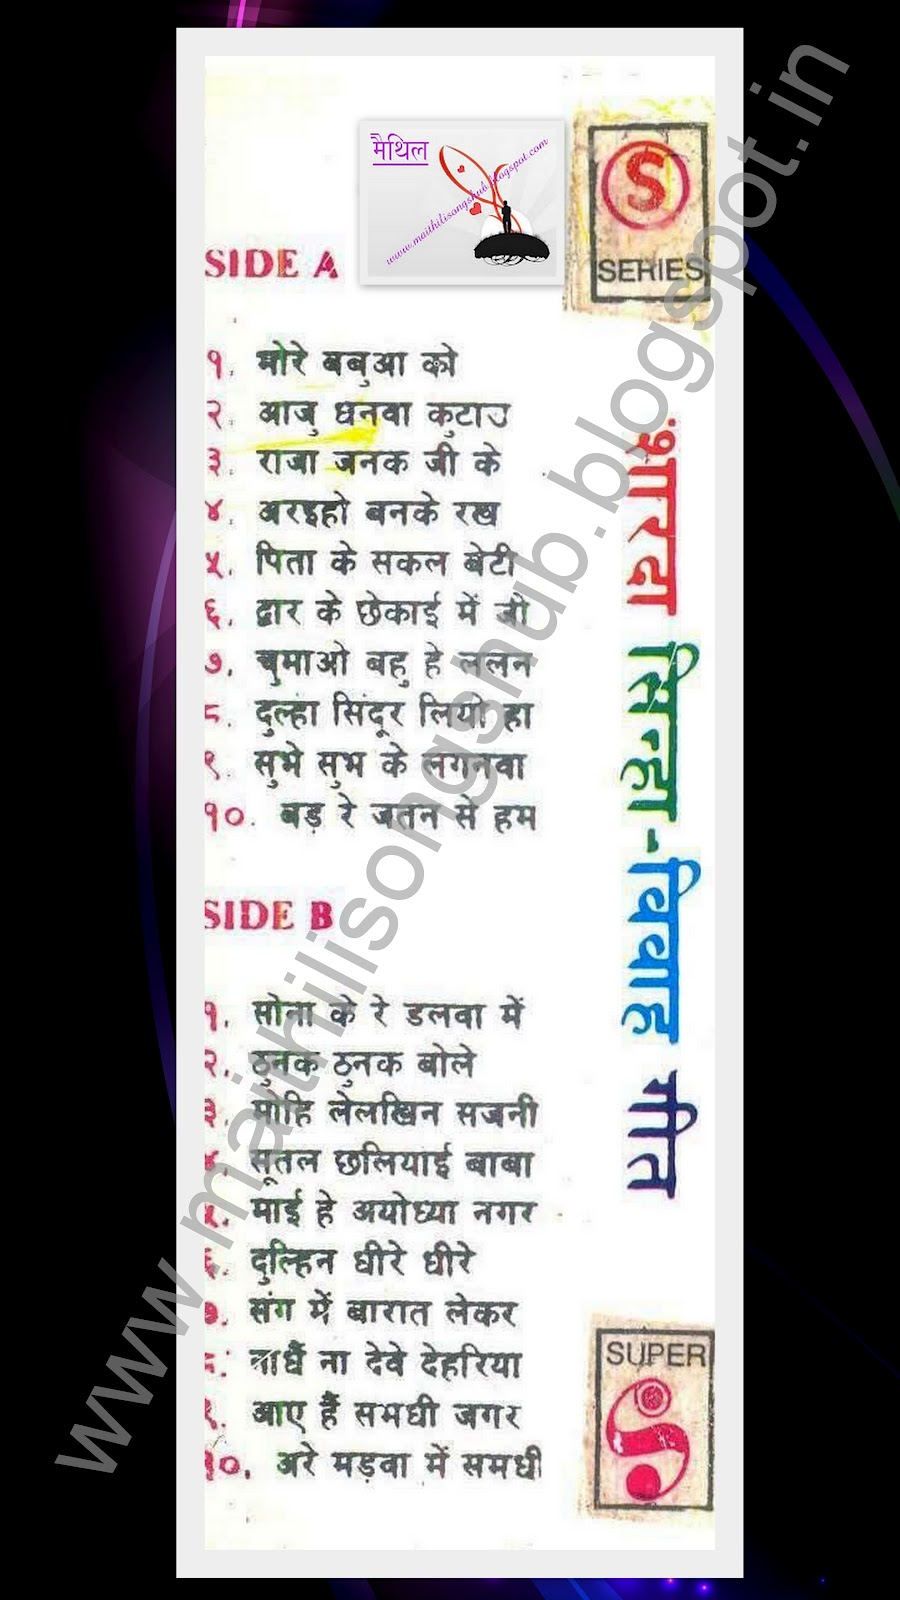 मैथिल
www.maithilisongshub.blogspot.com
S
SERIES
SIDE A
१. मोरे बबुआ को
२. आजु धनवा कुटाउ
३. राजा जनक जी के
४. अरइहो बनके रख
५. पिता के सकल बेटी
६. द्वार के छेकाई में जो
७. चुमाओ बहु हे ललन
८. दुल्हा सिंदूर लियो हा
९. सुभे सुभ के लगनवा
१०. बड़ रे जतन से हम
SIDE B
१. सोना के रे डलवा में
२. ठुनक ठुनक बोले
३. मोहि लेलखिन सजनी
४. सूतल छलियाई बाबा
५. माई हे अयोध्या नगर
६. दुल्हिन धीरे धीरे
७. संग में बारात लेकर
८. नाधैं ना देवे देहरिया
९. आए हैं समधी जगर
१०. अरे मड़वा में समधी
शारदा सिन्हा-विवाह गीत
SUPER
www.maithilisongshub.blogspot.in